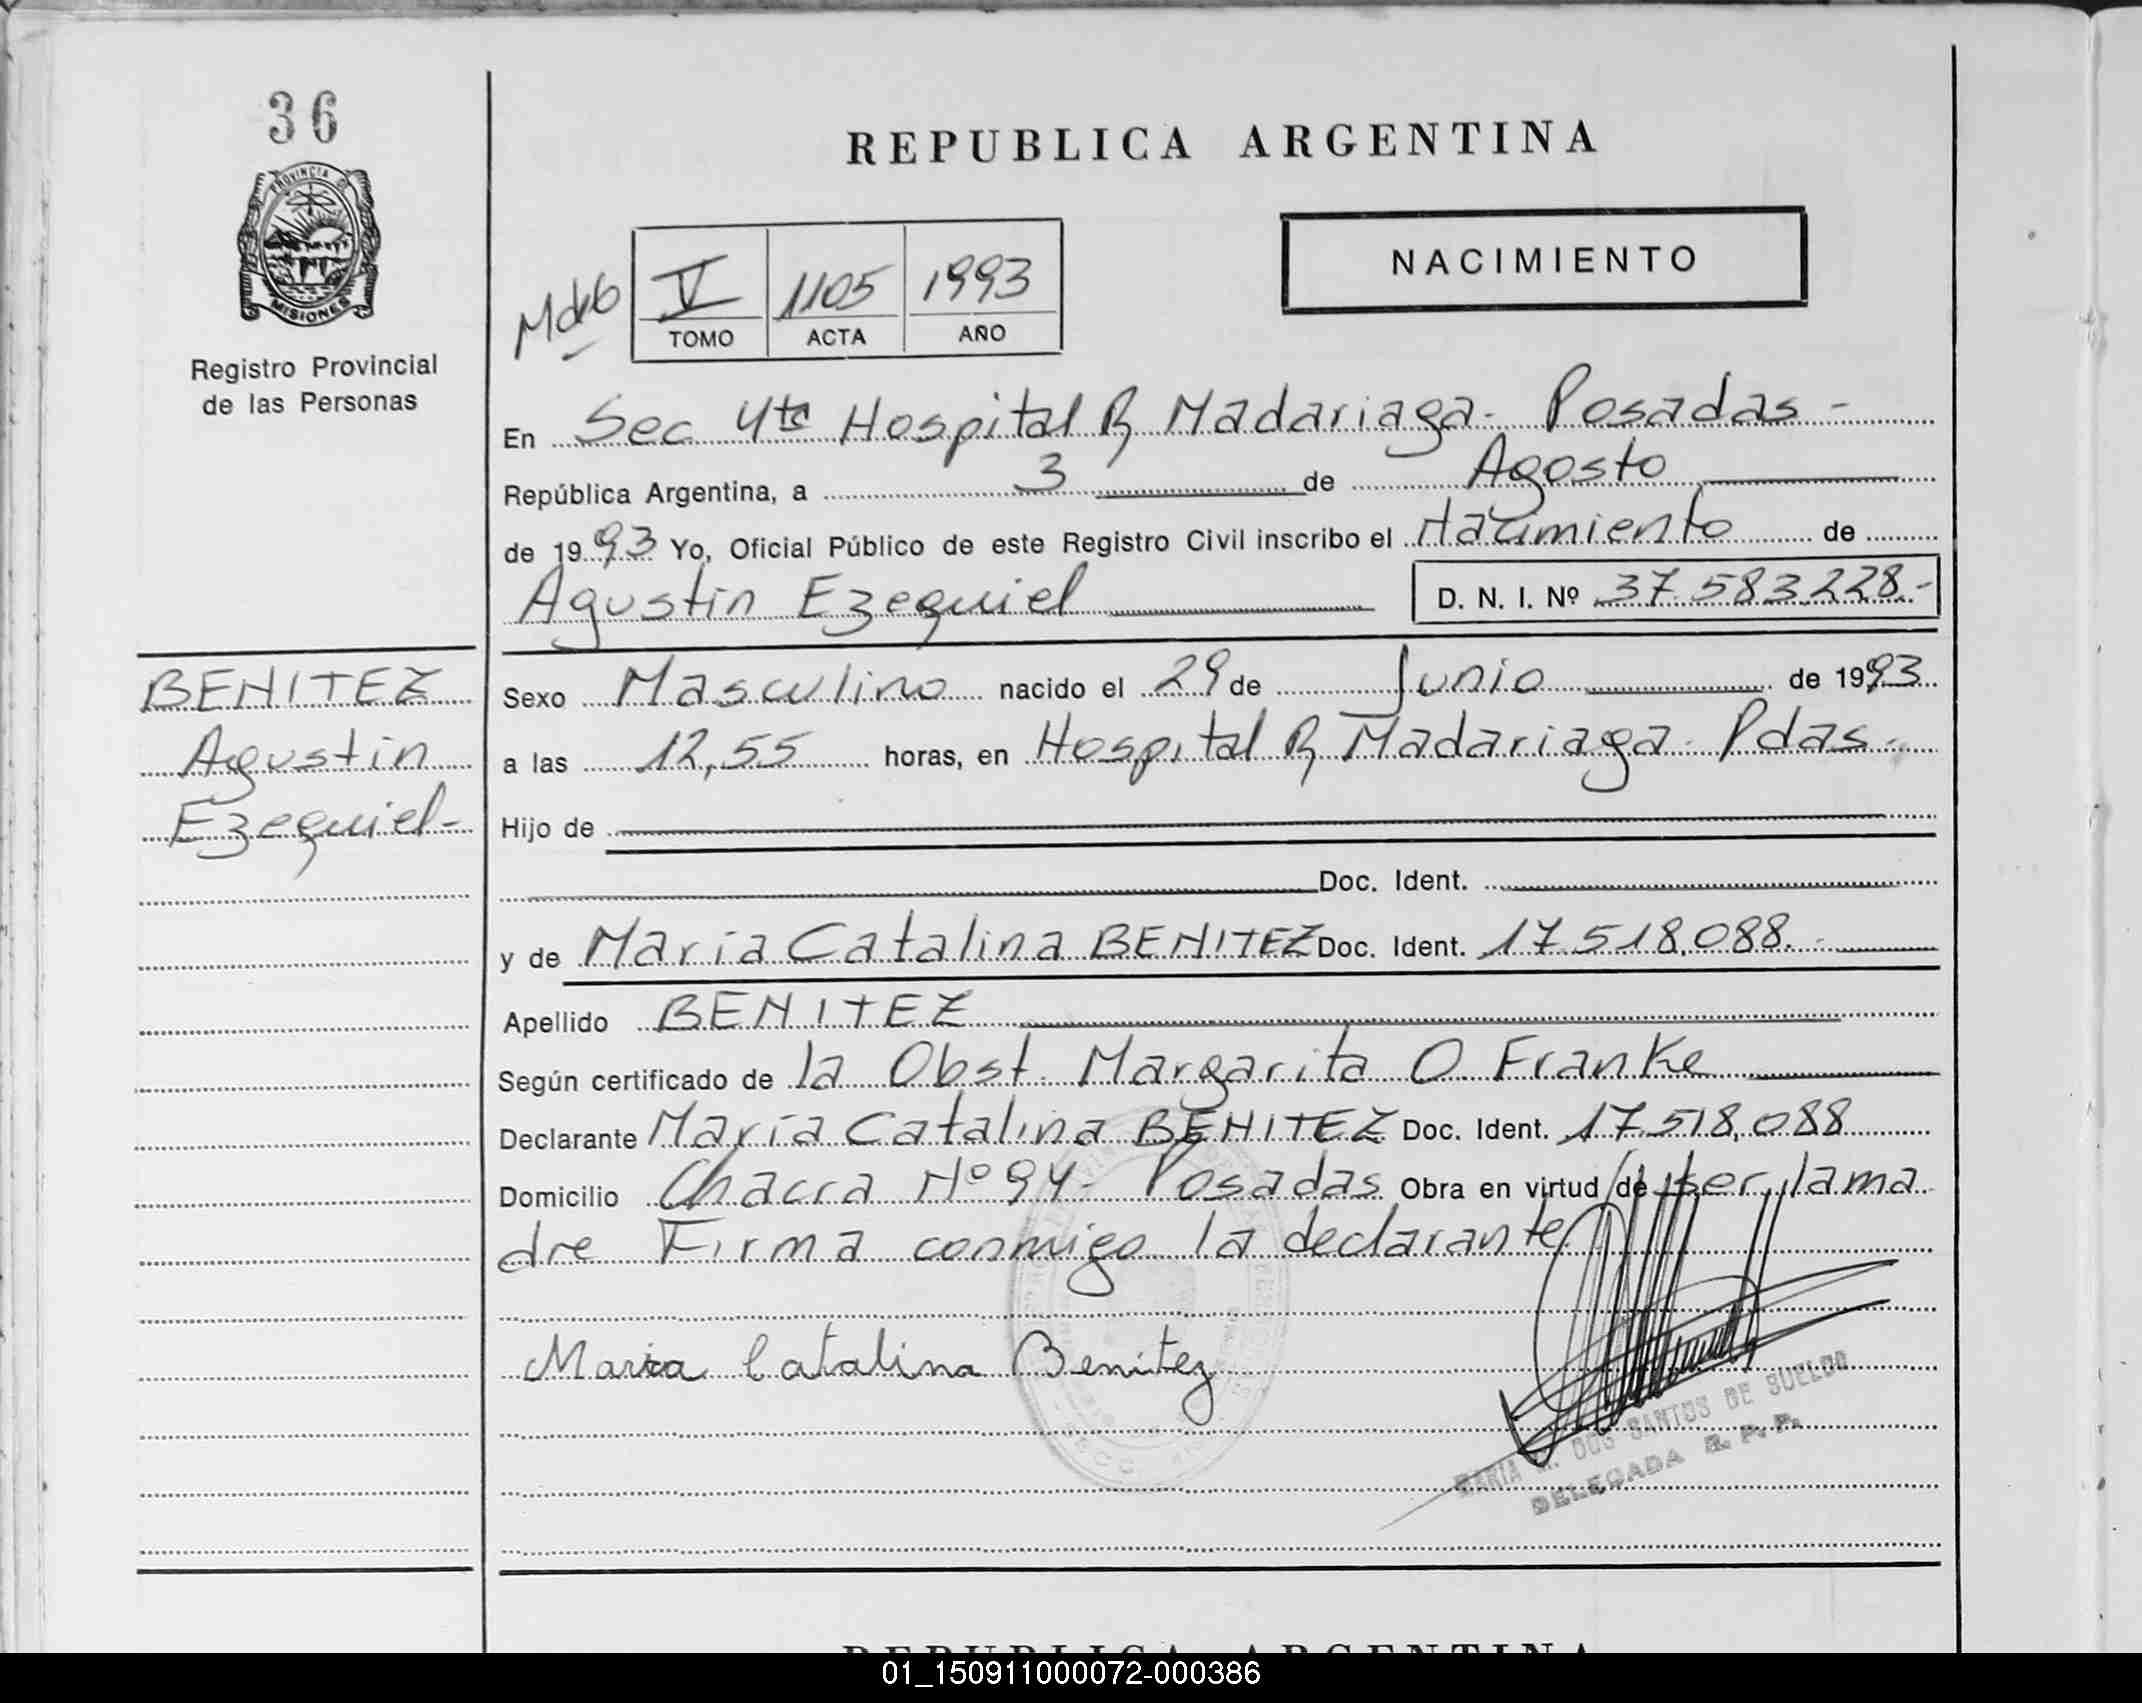 36
PROVINCIA DE
MISIONES
Registro Provincial
de las Personas
REPUBLICA ARGENTINA
NACIMIENTO
V 1105 1993
TOMO ACTA AÑO
En Sec 4ta Hospital R Madariaga - Posadas -
República Argentina, a 3 de Agosto
de 1993 Yo, Oficial Público de este Registro Civil inscribo el Nacimiento de
Agustin Ezequiel D. N. I. Nº 37.583.228.-
BENITEZ
Agustin
Ezequiel-
Sexo Masculino nacido el 29 de Junio de 1993
a las 12,55 horas, en Hospital R Madariaga - Pdas -
Hijo de
Doc. Ident.
y de María Catalina BENITEZ Doc. Ident. 17.518.088.-
Apellido BENITEZ
Según certificado de la Obst. Margarita O. Franke
Declarante María Catalina BENITEZ Doc. Ident. 17.518.088
Domicilio Chacra Nº 94 - Posadas Obra en virtud de ser la ma
dre Firma conmigo la declarante
Maria Catalina Benitez
MARIA DOS SANTOS DE SUELDO
DELEGADA R. P. P.
REPUBLICA ARGENTINA
01_150911000072-000386